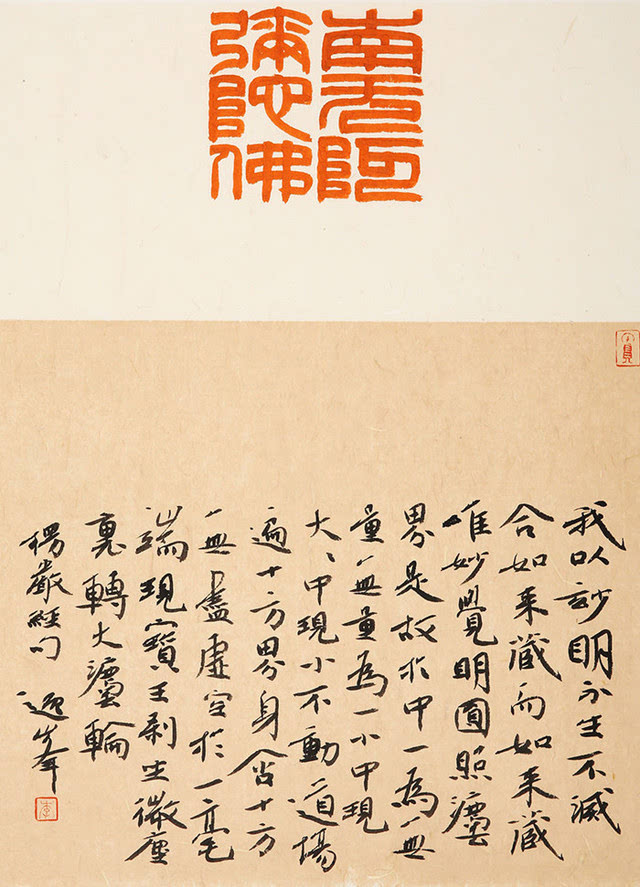 南无阿
彌陀佛
我以妙明不生不滅
合如来藏而如来藏
唯妙覺明圓照灋
界是故於中一為無
量無量為一小中現
大〻中現小不動道場
遍十方界身含十方
無盡虛空於一毫
端現寶王剎坐微塵
裏轉大灋輪
楞嚴經句 逸峯
李